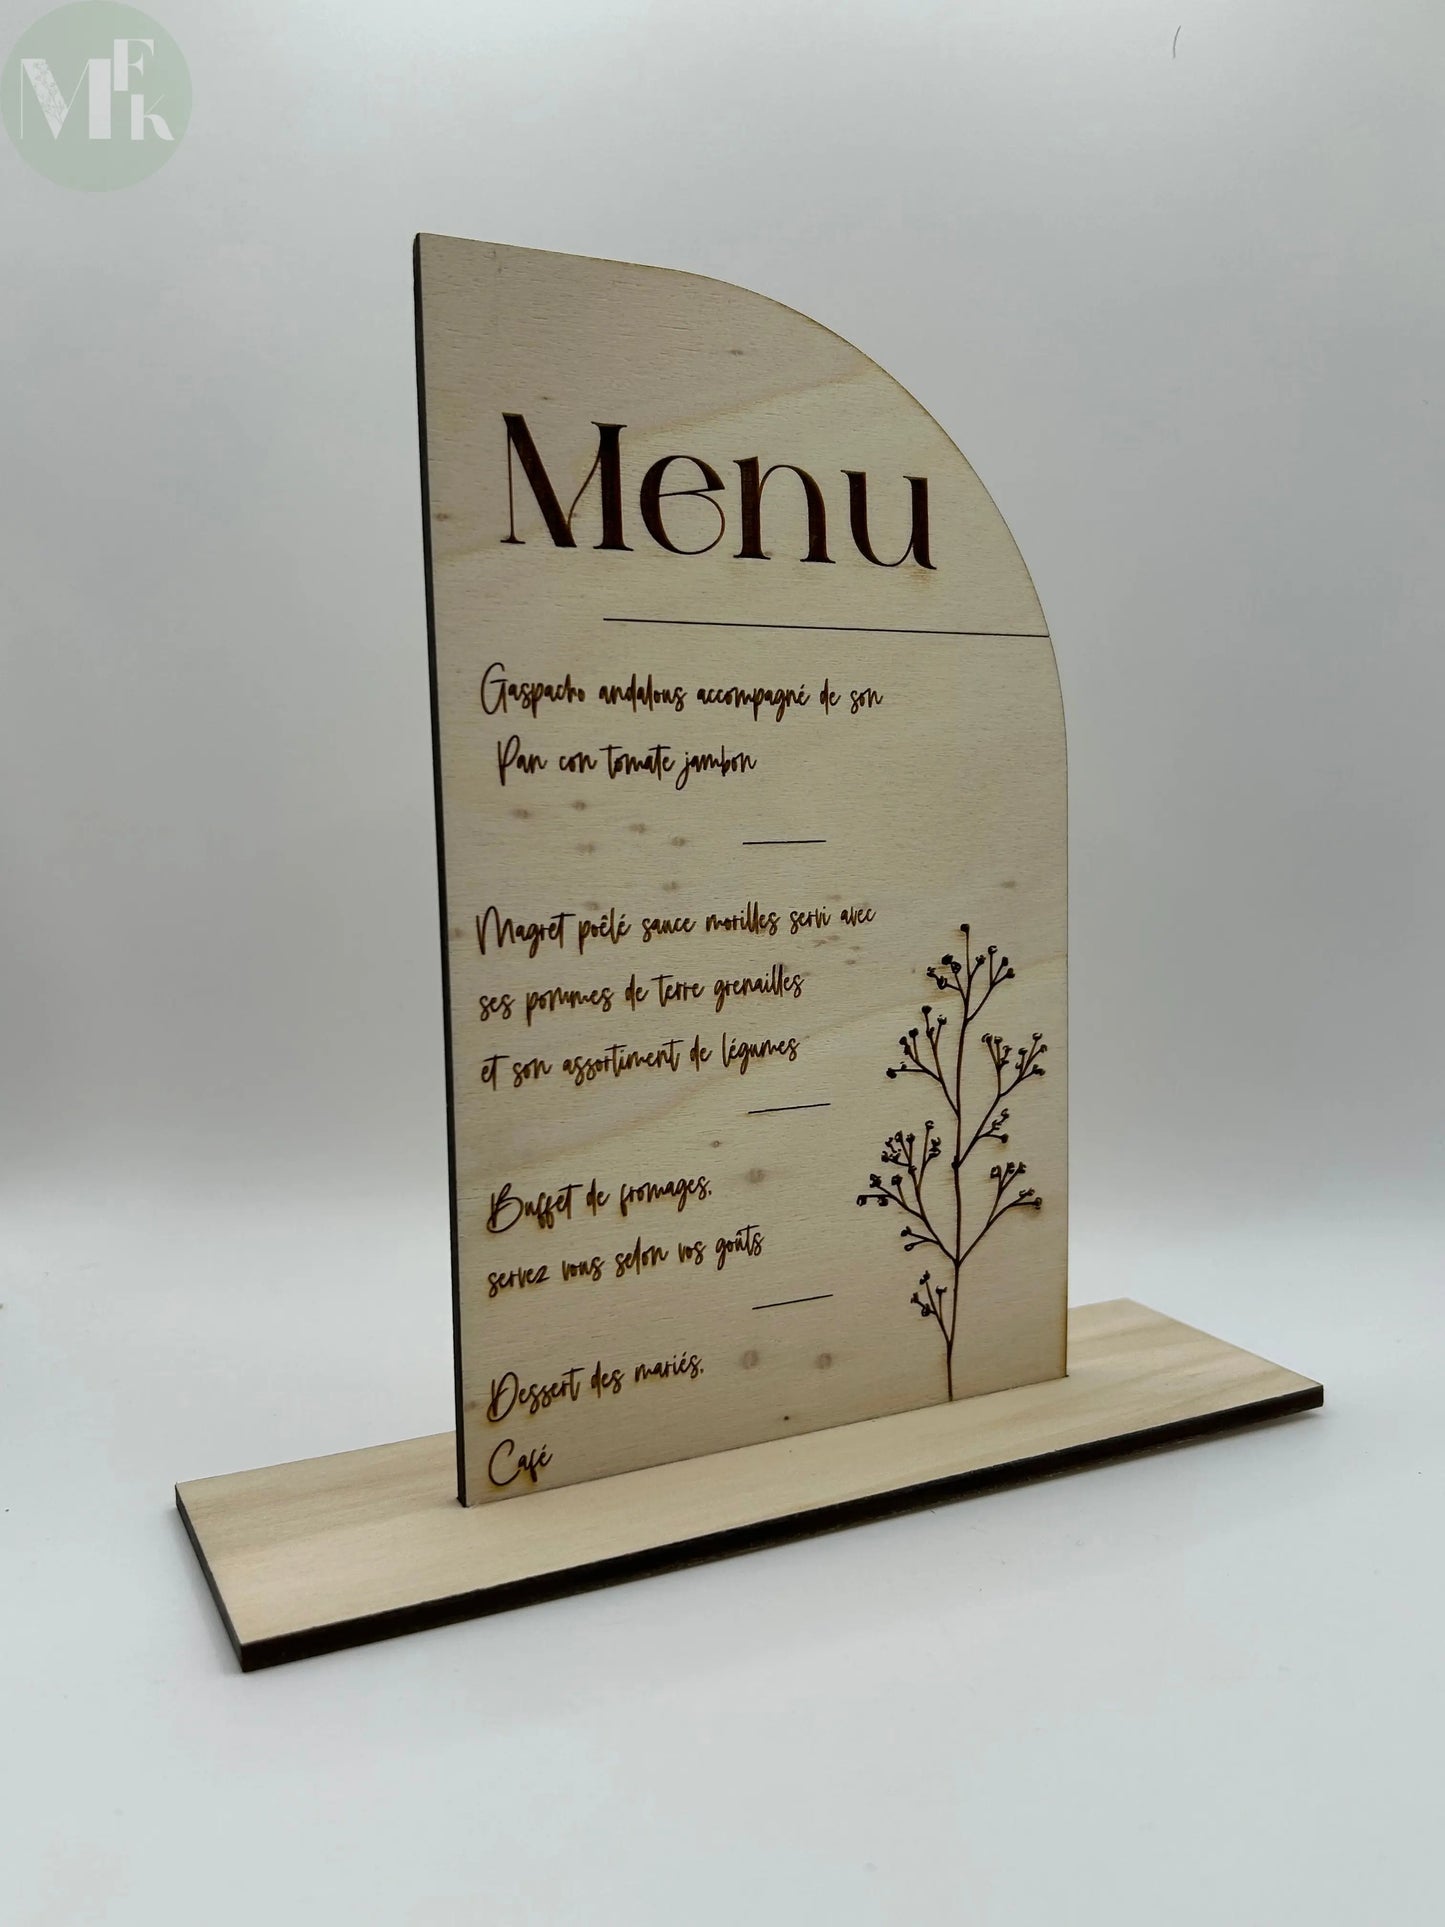 MFK
Menu
Gaspacho andalous accompagné de son
Pan con tomate jambon
Magret poêlé sauce morilles servi avec
ses pommes de terre grenailles
et son assortiment de légumes
Buffet de fromages,
servez vous selon vos goûts
Dessert des mariés,
Café